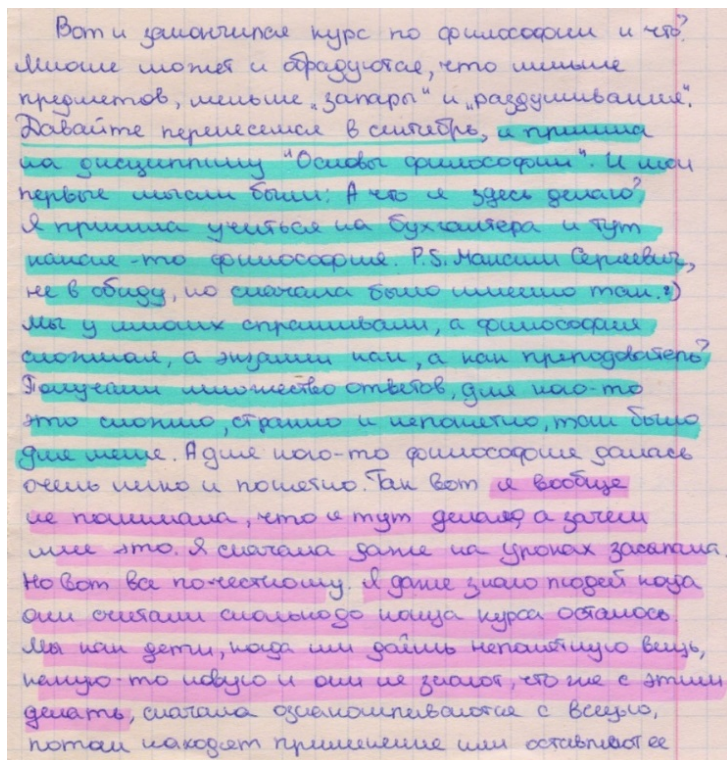 Вот и закончился курс по философии и что?
Многие может и обрадуются, что меньше
предметов, меньше „запары" и „раздумывания".
Давайте перенесемся в сентябрь, я пришла
на дисциплину "Основы философии". И мои
первые мысли были: А что я здесь делаю?
Я пришла учиться на бухгалтера и тут
какая-то философия. P.S. Максим Сергеевич,
не в обиду, но сначала было именно так. :)
Мы у многих спрашивали, а философия
сложная, а экзамен как, а как преподователь?
Получали множество ответов, для кого-то
это сложно, странно и непонятно, так было
для меня. А для кого-то философия далась
очень легко и понятно. Так вот я вообще
не понимала, что я тут делаю, а зачем
мне это. Я сначала даже на уроках засыпала.
Но вот все по-честному. Я даже знаю людей когда
они считали сколько до конца курса осталось.
Мы как дети, когда им даёшь непонятную вещь,
какую-то новую и они не знают, что же с этим
делать, сначала ознакомливаются с вещью,
потом находят применение или оставляют ее